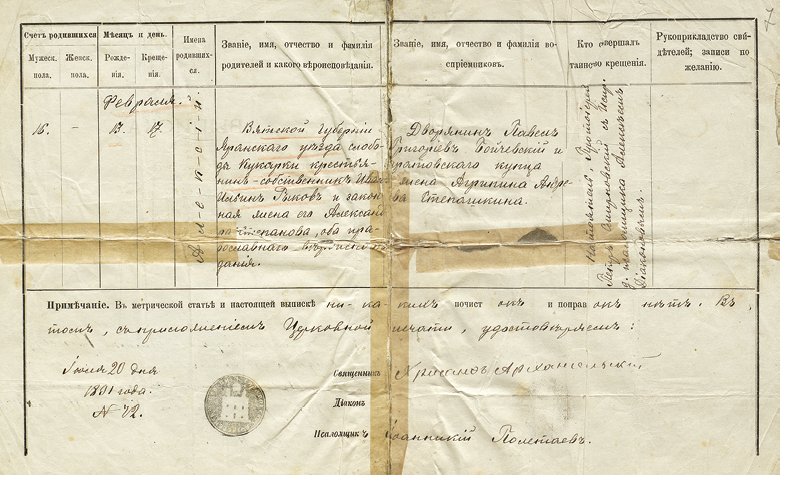 7
Счетъ родившихся
Мужеск. пола.
Женск. пола.
Мѣсяцъ и день.
Рожденія.
Крещенія.
Имена родившихся.
Званіе, имя, отчество и фамилія
родителей и какого вѣроисповѣданія.
Званіе, имя, отчество и фамилія воспріемниковъ.
Кто совершалъ
таинство крещенія.
Рукоприкладство свидѣтелей;
записи по
желанію.
Февраля.
16.
–
13.
17.
Алексій
Вятской Губерніи
Яранскаго уѣзда слободы
Кукарки крестьянинъ-собственникъ
Ильинъ Рыковъ и законная
жена его Александра
Стефанова, оба православнаго
вѣроисповѣданія.
Дворянинъ Павелъ
Григорьевъ и
Саратовскаго купца
жена Агрипина
Степашкина.
Протоіерей
Петръ Смирновскій съ
Діакономъ.
Примѣчаніе. Въ метрической статьѣ и настоящей выпискѣ никакихъ почистокъ и поправокъ нѣтъ. Въ
томъ, съ приложеніемъ Церковной печати, удостовѣряемъ:
Іюля 20 дня
1891 года.
№ 72.
Священникъ Хрисанфъ Архангельскій
Діаконъ
Псаломщикъ Іоанникій Полетаевъ.